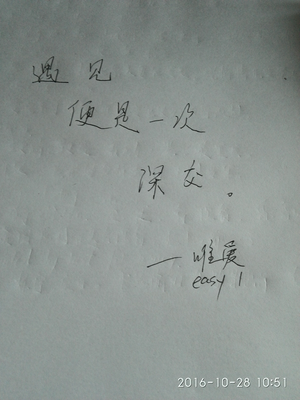 遇见
便是一次
深交。
一唯爱
easy1
2016-10-28 10:51